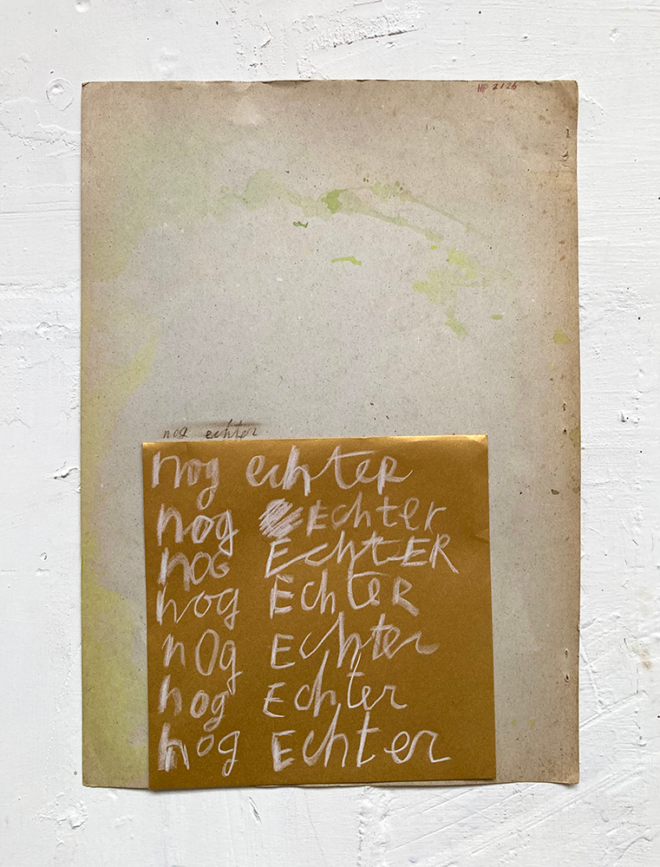 nog echter
nog echter
nog Echter
nog EchtER
nog EchteR
nOg Echter
nog Echter
nog Echter